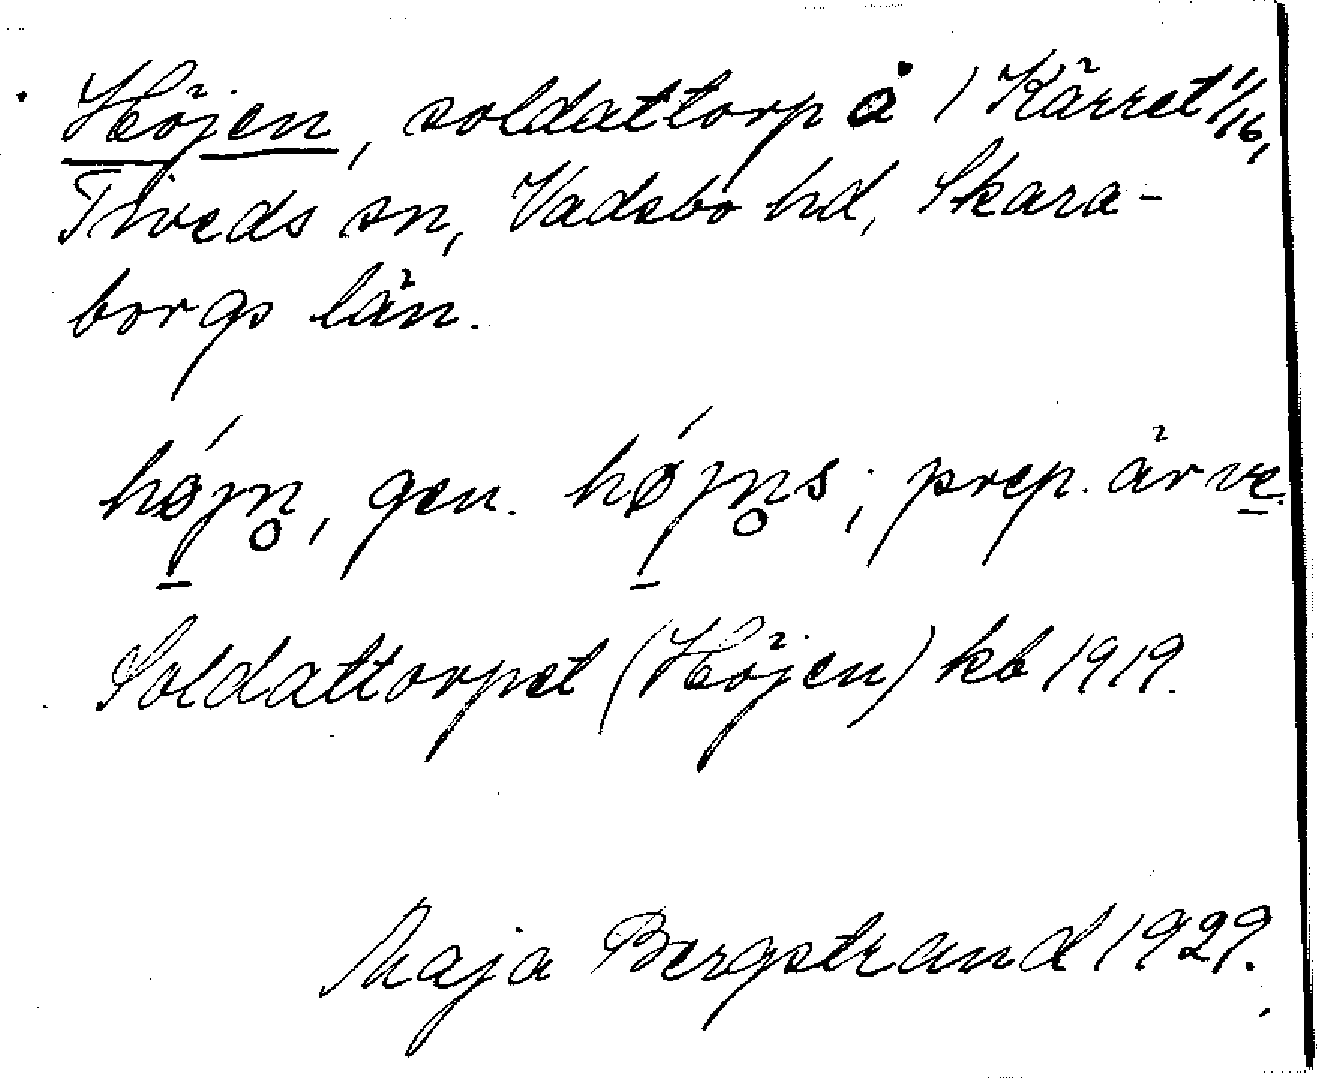 Höjen, soldattorp å 1 Kärret 1/16,
Tiveds sn, Vadsbo hd, Skara-
borgs län.
hǿjn̥, gen. hǿjn̥s; prep. är ve.
Soldattorpet (Höjen) kb 1919.
Maja Bergstrand 1929.